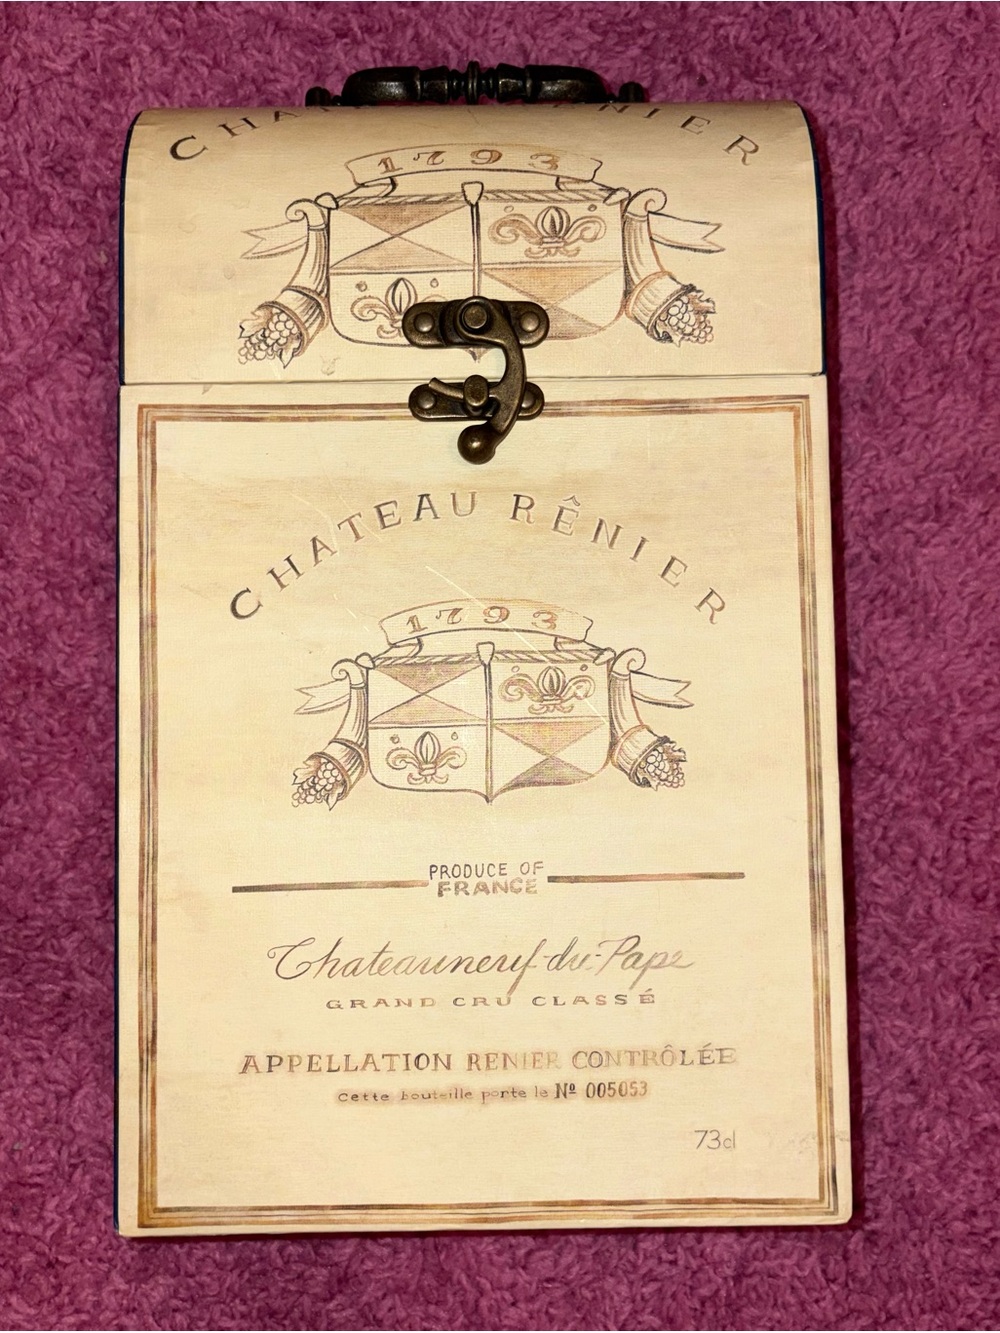 CHATEAU RÊNIER
1793
CHATEAU RÊNIER
1793
PRODUCE OF
FRANCE
Chateauneuf-du-Pape
GRAND CRU CLASSÉ
APPELLATION RENIER CONTRÔLÉE
Cette bouteille porte le Nº 005053
73cl